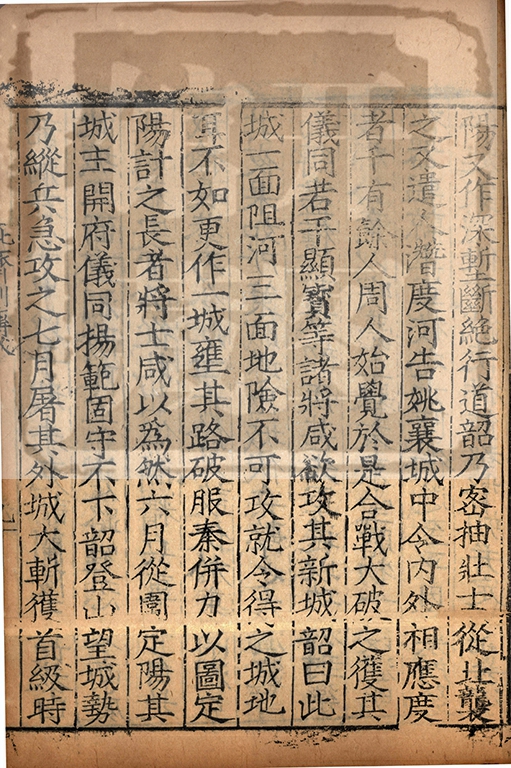 陽又作深塹斷絶行道韶乃密抽壯士從北襲
之又遣人潛度河告姚襄城中令内外相應度
者千有餘人周人始覺於是合戰大破之獲其
儀同若干顯寳等諸將咸欲攻其新城韶曰此
城一面阻河三面地險不可攻就令得之城地
耳不如更作一城壅其路破服秦併力以圖定
陽計之長者將士咸以為然六月從圍定陽其
城主開府儀同揚範固守不下韶登山望城勢
乃縱兵急攻之七月屠其外城大斬獲首級時